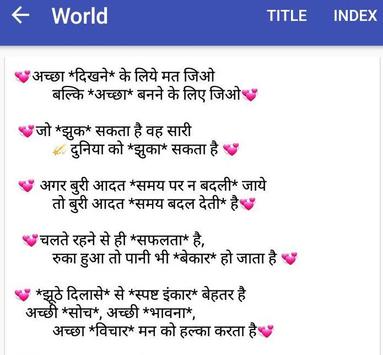 ← World TITLE INDEX
💞अच्छा *दिखने* के लिये मत जिओ
बल्कि *अच्छा* बनने के लिए जिओ💞
💞जो *झुक* सकता है वह सारी
💫 दुनिया को *झुका* सकता है 💞
💞 अगर बुरी आदत *समय पर न बदली* जाये
तो बुरी आदत *समय बदल देती* है💞
💞चलते रहने से ही *सफलता* है,
रुका हुआ तो पानी भी *बेकार* हो जाता है 💞
💞 *झूठे दिलासे* से *स्पष्ट इंकार* बेहतर है
अच्छी *सोच*, अच्छी *भावना*,
अच्छा *विचार* मन को हल्का करता है💞